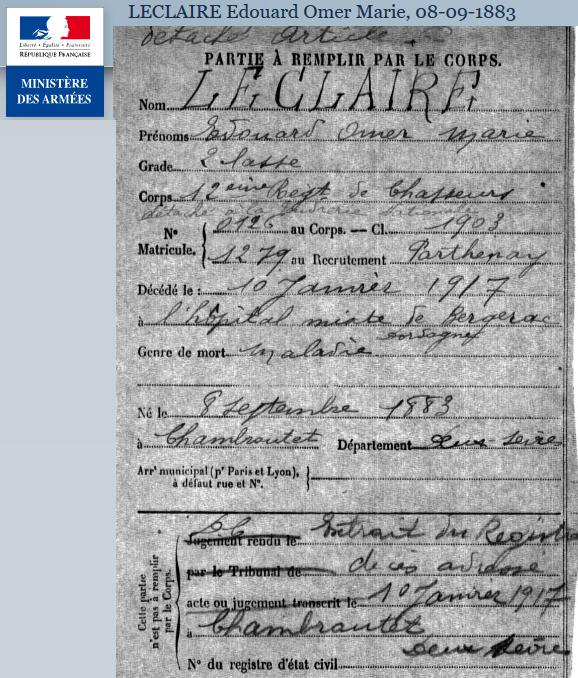 LECLAIRE Edouard Omer Marie, 08-09-1883
Liberté • Égalité • Fraternité
RÉPUBLIQUE FRANÇAISE
MINISTÈRE
DES ARMÉES
détaché Article
PARTIE À REMPLIR PAR LE CORPS.
Nom LECLAIRE
Prénoms Edouard Omer Marie
Grade 2 classe
Corps 12eme Regt de Chasseurs
détaché à la
N° Matricule. au Corps. — Cl. 1903
1279 au Recrutement Parthenay
Décédé le : 10 Janvier 1917
à l'hôpital mixte de Bergerac
Dordogne
Genre de mort Maladie
Né le 8 Septembre 1883
à Chambroutet Département Deux-Sèvres
Arrt municipal (pr Paris et Lyon),
à défaut rue et N°.
Cette partie
n'est pas à remplir
par le Corps.
Jugement rendu le Extrait du Registre
par le Tribunal de de
acte ou jugement transcrit le 10 Janvier 1917
à Chambroutet
Deux Sèvres
N° du registre d'état civil